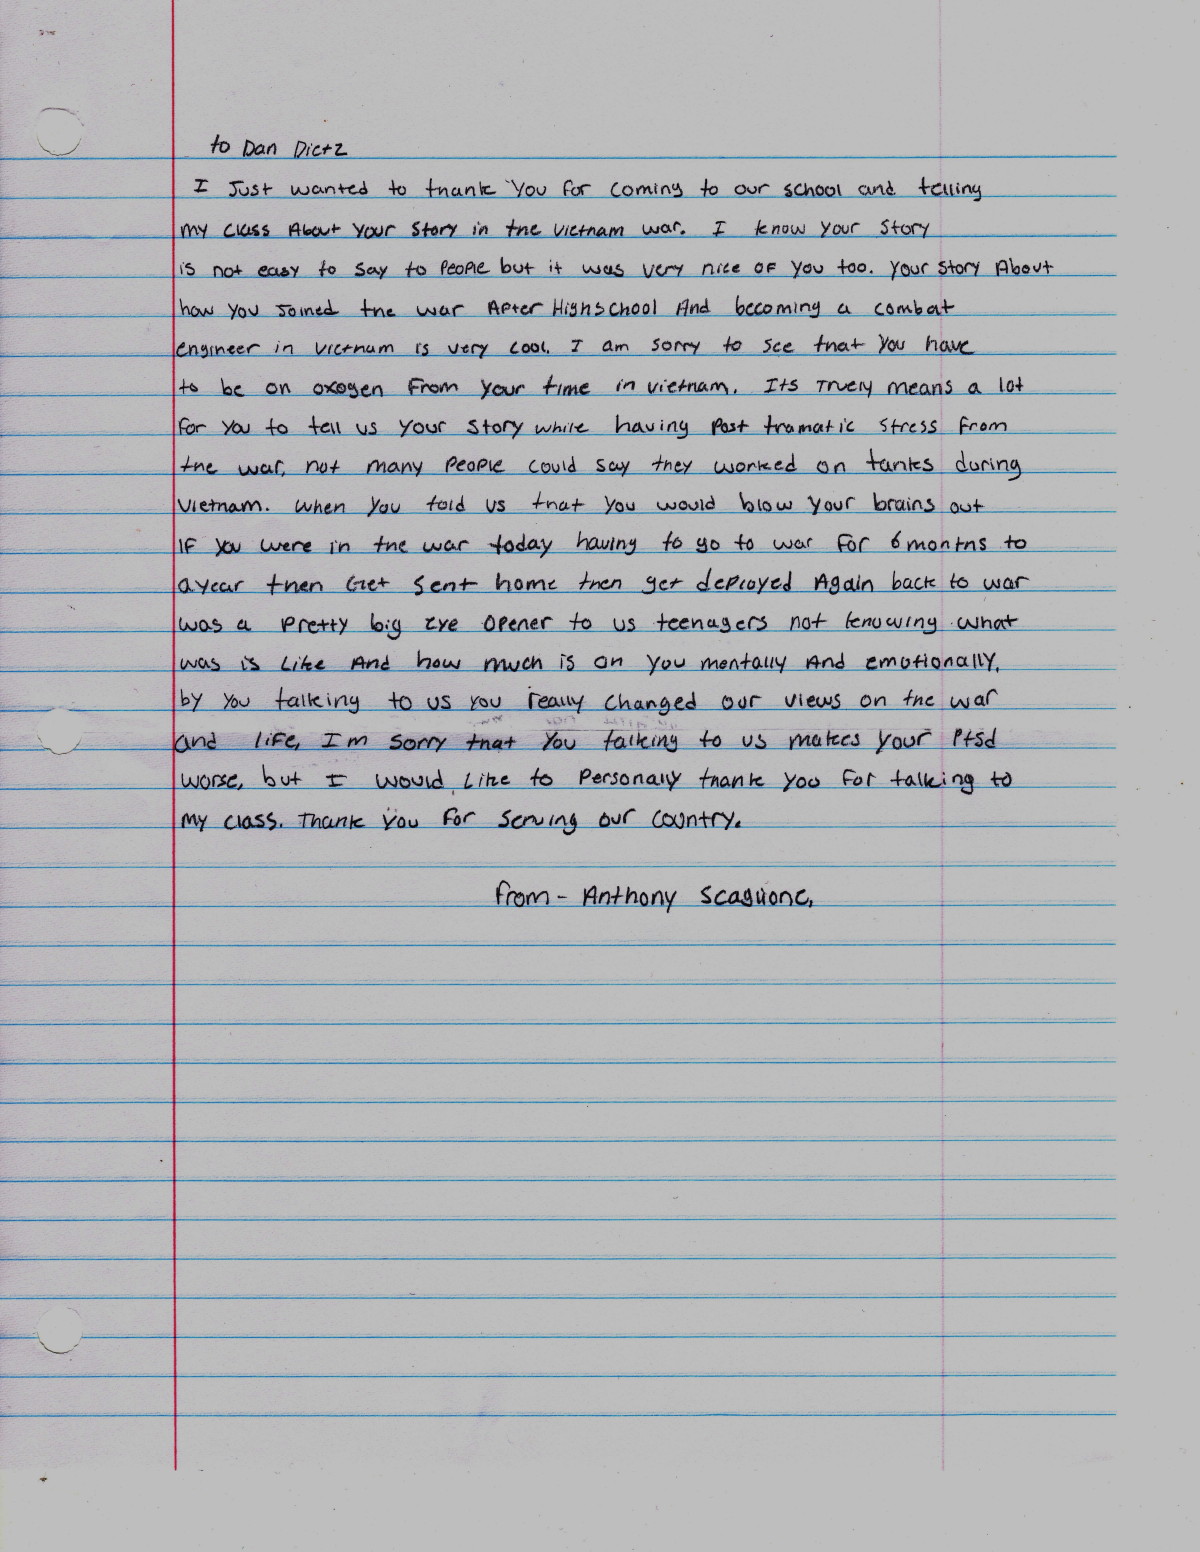 to Dan Dietz
I Just wanted to thank You for coming to our school and telling
my class About Your Story in the Vietnam war. I know your Story
is not easy to say to People but it was very nice of you too. Your Story About
how you Joined the war After Highschool And becoming a combat
engineer in Vietnam is very cool. I am sorry to see that you have
to be on oxogen from your time in Vietnam. Its Truely means a lot
for you to tell us your Story while having Post tramatic Stress from
the war, not many People could say they worked on tanks during
Vietnam. When you told us that you would blow your brains out
IF you were in the war today having to go to war for 6 months to
a year then Get Sent home then get deployed Again back to war
was a Pretty big Eye Opener to us teenagers not knowing what
was is Like And how much is on you mentally And emotionally.
by you talking to us you really changed our views on the war
and life, I'm sorry that You talking to us makes your Ptsd
worse, but I would Like to Personally thank you for talking to
my class. Thank You For Serving our Country.
from - Anthony Scaglione,